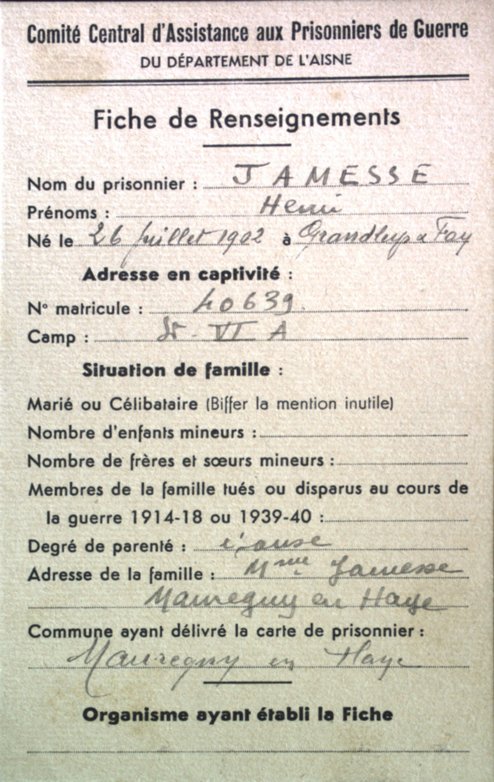 Comité Central d'Assistance aux Prisonniers de Guerre
DU DÉPARTEMENT DE L'AISNE
Fiche de Renseignements
Nom du prisonnier : JAMESSE
Prénoms : Henri
Né le 26 juillet 1902 à Grandlup et Fay
Adresse en captivité :
N° matricule : 40639
Camp : St - VI A
Situation de famille :
Marié ou Célibataire (Biffer la mention inutile)
Nombre d'enfants mineurs :
Nombre de frères et sœurs mineurs :
Membres de la famille tués ou disparus au cours de
la guerre 1914-18 ou 1939-40 :
Degré de parenté : épouse
Adresse de la famille : Mme Jamesse
Mauregny en Haye
Commune ayant délivré la carte de prisonnier :
Mauregny en Haye
Organisme ayant établi la Fiche